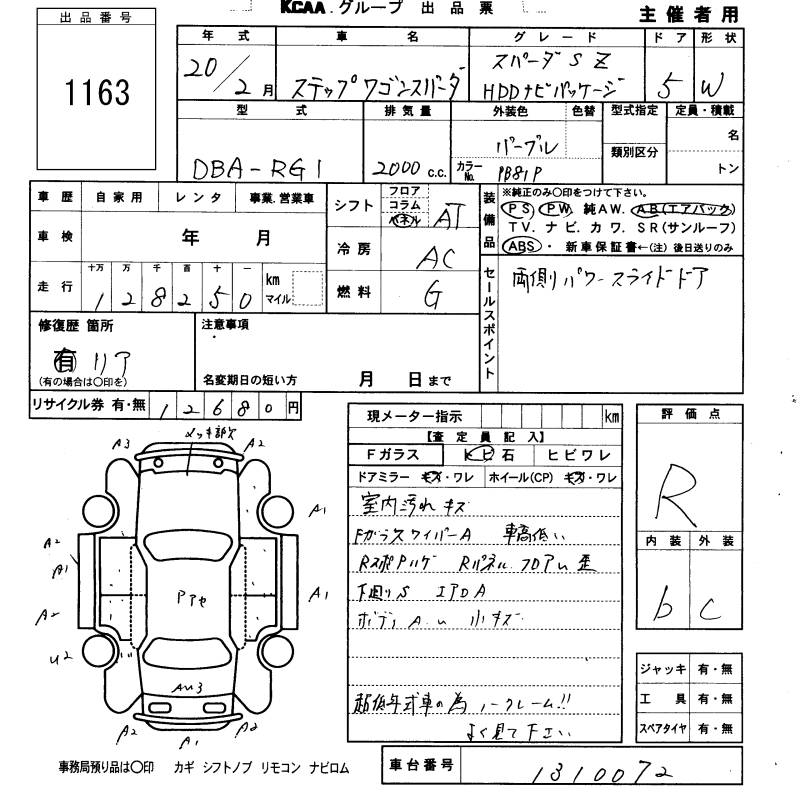 KCAA.グループ 出品票
主催者用
出品番号
1163
年式 車名 グレード ドア 形状
20/2月 ステップワゴンスパーダ スパーダSZ HDDナビパッケージ 5 W
型式 排気量 外装色 色替 型式指定 定員・積載
DBA-RG1 2000 c.c. パープル 類別区分 名
カラーNo. PB81P トン
車歴 自家用 レンタ 事業.営業車
車検 年 月
走行 十万 万 千 百 十 一
128250 km マイル
シフト フロア コラム パネル AT
冷房 AC
燃料 G
装備品 ※純正のみ○印をつけて下さい。
PS PW 純AW. AB(エアバック)
TV. ナビ. カワ. SR(サンルーフ)
ABS・新車保証書←(注)後日送りのみ
セールスポイント
両側パワースライドドア
修復歴 箇所
有 リア
(有の場合は○印を)
注意事項
名変期日の短い方 月 日まで
リサイクル券 有・無 12680円
現メーター指示 km
【査定員記入】
Fガラス トビ石 ヒビワレ
ドアミラー キズ・ワレ ホイール(CP) キズ・ワレ
室内汚れ キズ
FガラスワイパーA 車高低い
Rパネル フロアU 歪
下廻りS エアロA
ボディA.U 小キズ
超低年式車の為 ノークレーム!!
よく見て下さい
評価点
R
内装 外装
b C
ジャッキ 有・無
工具 有・無
スペアタイヤ 有・無
メッキ部欠
A3 A2
A1
A2
A1 A1
A2
U2
Pアセ
AU3
A2 A1 A2
事務局預り品は○印 カギ シフトノブ リモコン ナビロム
車台番号 1310072